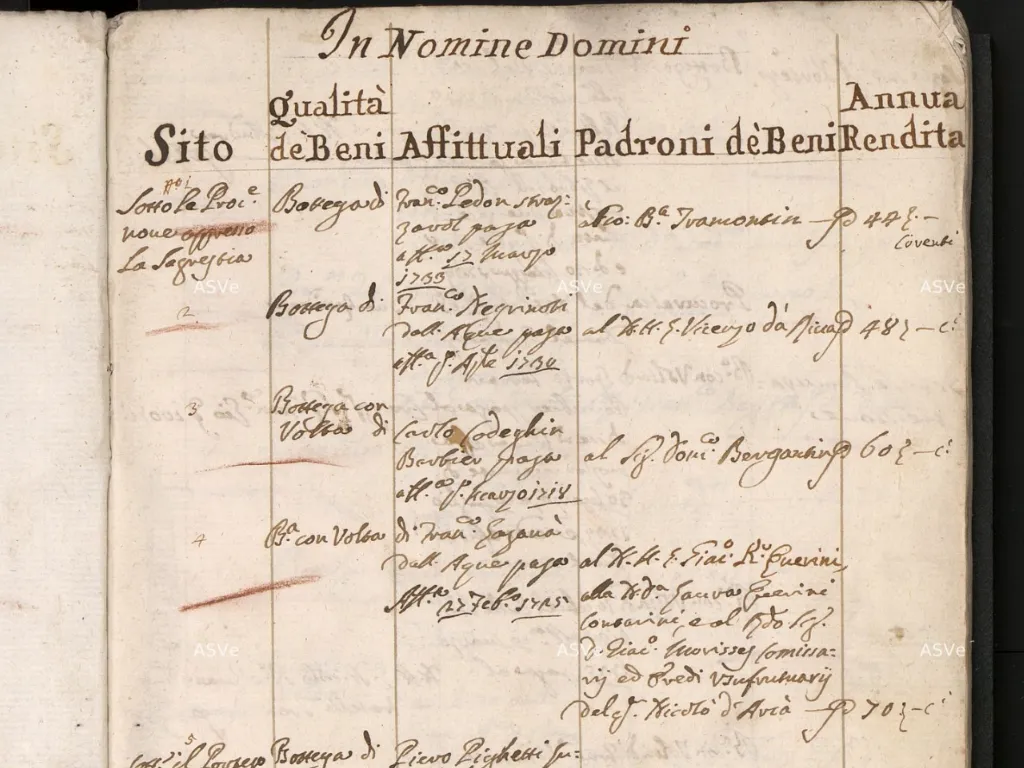 In Nomine Domini
Sito
Qualità
de Beni
Affittuali
Padroni dè Beni
Annua
Rendita
No. 1
Sotto le Proc.e
noue appresso
La Sagrestia
Bottega di
Fran.co Pedon straz:
zarol paga
aff.to 17 Marzo
1733
à Gio: B.a Tramontin — D 44 —
Coventi
2
Bottega di
Fran.co Negrinoti
dall'Aque paga
aff.a p. Aple 1734
al N.H. Vicenzo da Riva D 48 — c.
3
Bottega con
Volta di
Carlo Codeghin
Barbier paga
aff.to p. Marzo 1718
al Sig. Dom.co Bergantin D 60 — c.
4
B.a con Volta
di Fran.co
dall'Aque paga
Aff.to 27 Feb.o 1725
al N.H. Giac.o K.r Querini,
alla N.Da Laura Querini
Contarini, e al Rdo Sig.
D. Giac.o Morisses Comissa:
rij ed Eredi Vsufrutuarij
del q. Nicolò d'Avià — D 70 — c.
5
Sott.o il Portego
Bottega di
Piero Pighetti
ASVe
ASVe
ASVe
ASVe
ASVe
ASVe